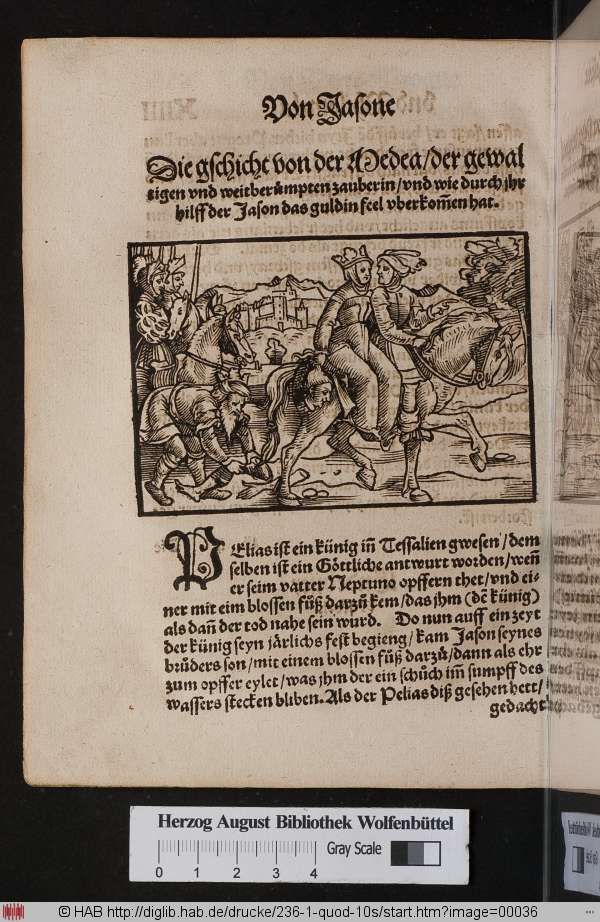 Von Jasone
Die gschicht von der Medea / der gewal
tigen vnd weitberůmpten zauberin / vnd wie durch jhr
hilff der Jason das guldin feel vberkom̃en hat.
PElias ist ein künig iñ Tessalien gwesen / dem
selben ist ein Göttliche antwurt worden / weñ
er seim vatter Neptuno opffern thet / vnd ei-
ner mit eim blossen fůß darzů kem / das jhm (dẽ künig)
als dañ der tod nahe sein wurd. Do nun auff ein zeyt
der künig seyn järlichs fest begieng / kam Jason seynes
brůders son / mit einem blossen fůß darzů / dann als ehr
zum opffer eylet / was jhm der ein schůch im̃ sumpff des
wassers stecken bliben. Als der Pelias diß gesehen hett /
gedacht
Herzog August Bibliothek Wolfenbüttel
Gray Scale
0 1 2 3 4
© HAB http://diglib.hab.de/drucke/236-1-quod-10s/start.htm?image=00036